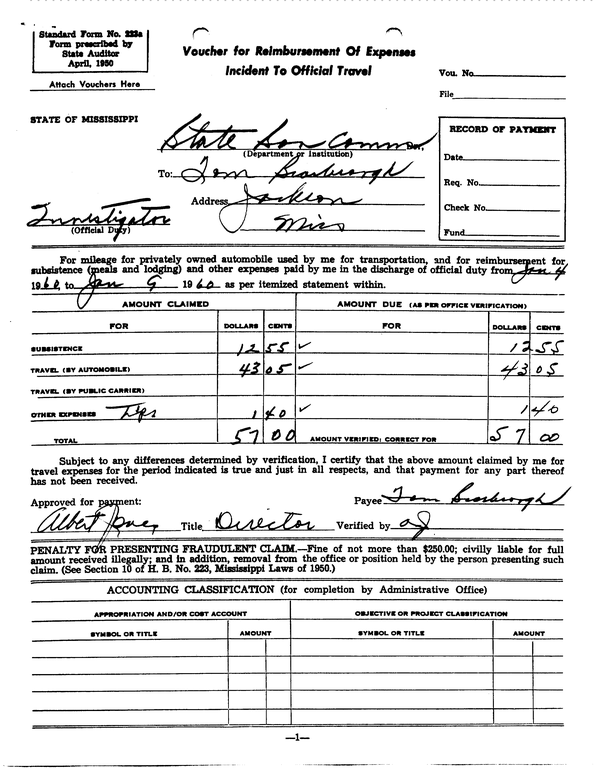 Standard Form No. 223a
Form prescribed by
State Auditor
April, 1950
Attach Vouchers Here
Voucher for Reimbursement Of Expenses
Incident To Official Travel
Vou. No.
File
STATE OF MISSISSIPPI
State Sov Comm
(Department or Institution)
To: Tom Scarbrough
Address Jackson
Miss
Investigator
(Official Duty)
RECORD OF PAYMENT
Date
Req. No.
Check No.
Fund
For mileage for privately owned automobile used by me for transportation, and for reimbursement for
subsistence (meals and lodging) and other expenses paid by me in the discharge of official duty from Jan 4
1960, to Jan 9 1960 as per itemized statement within.
AMOUNT CLAIMED AMOUNT DUE (AS PER OFFICE VERIFICATION)
FOR DOLLARS CENTS FOR DOLLARS CENTS
SUBSISTENCE 12 55 ✓ 12 55
TRAVEL (BY AUTOMOBILE) 43 05 ✓ 43 05
TRAVEL (BY PUBLIC CARRIER)
OTHER EXPENSES Tips 1 40 ✓ 1 40
TOTAL 57 00 AMOUNT VERIFIED: CORRECT FOR 57 00
Subject to any differences determined by verification, I certify that the above amount claimed by me for
travel expenses for the period indicated is true and just in all respects, and that payment for any part thereof
has not been received.
Approved for payment: Payee Tom Scarbrough
Albert Jones Title Director Verified by aj
PENALTY FOR PRESENTING FRAUDULENT CLAIM.—Fine of not more than $250.00; civilly liable for full
amount received illegally; and in addition, removal from the office or position held by the person presenting such
claim. (See Section 10 of H. B. No. 223, Mississippi Laws of 1950.)
ACCOUNTING CLASSIFICATION (for completion by Administrative Office)
APPROPRIATION AND/OR COST ACCOUNT OBJECTIVE OR PROJECT CLASSIFICATION
SYMBOL OR TITLE AMOUNT SYMBOL OR TITLE AMOUNT
—1—